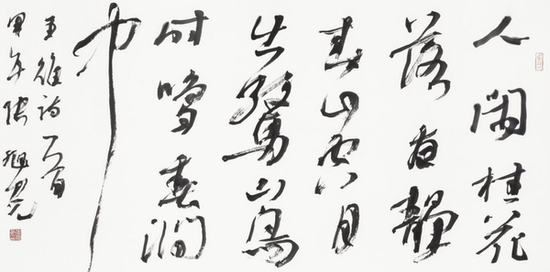 人閑桂花
落夜靜
春山空月
出驚山鳥
時鳴春澗
中
王維詩一首
甲午張旭光